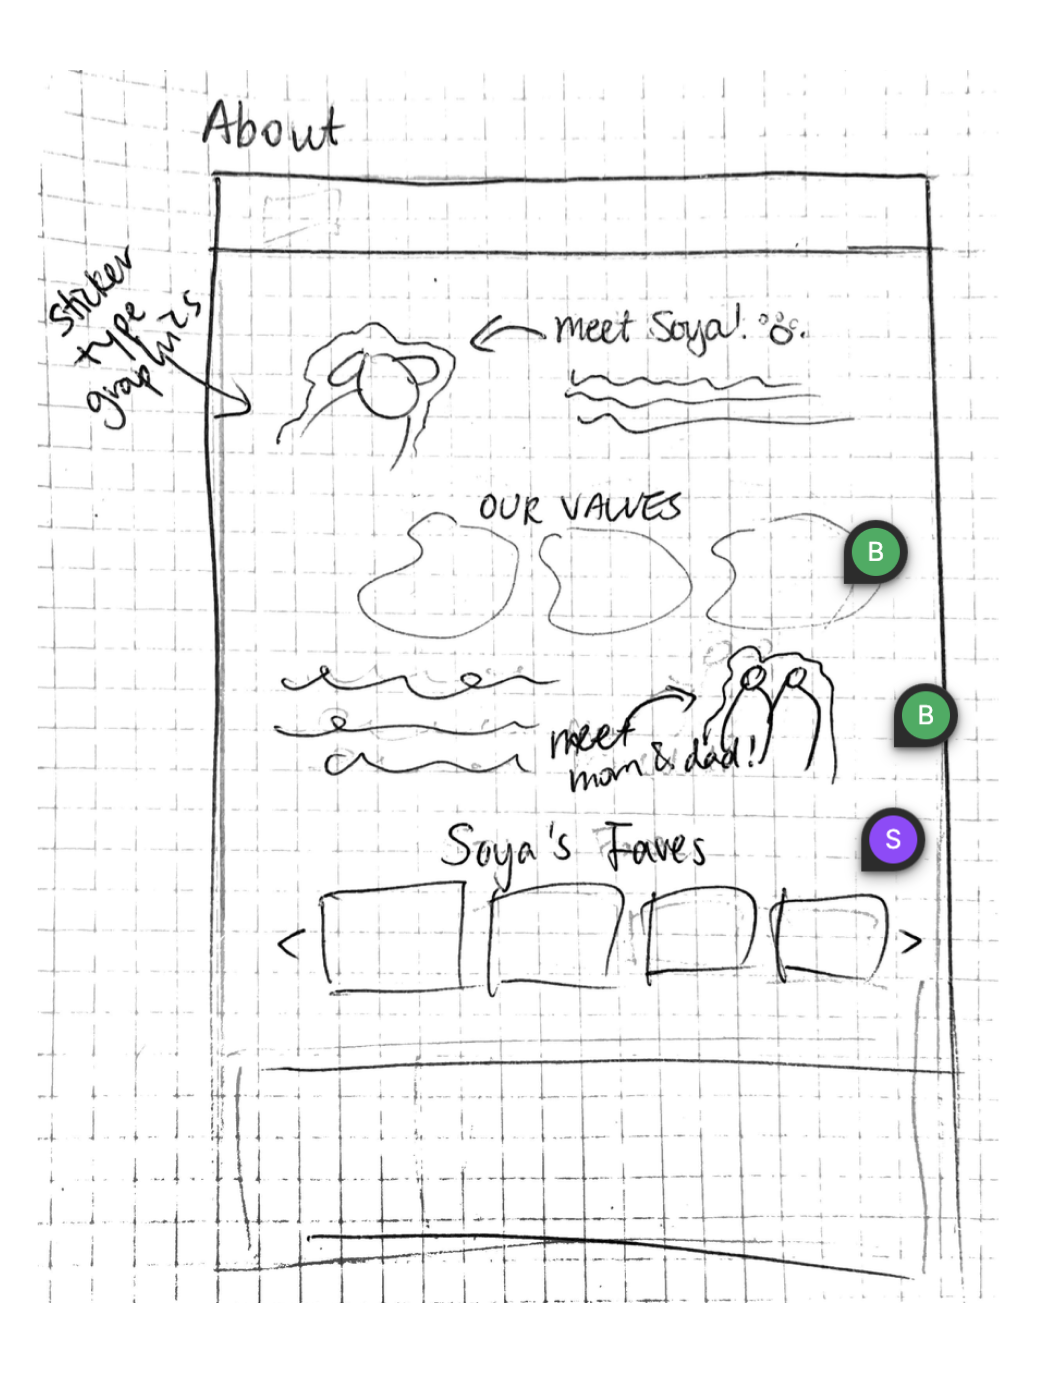 About
sticker
type
graphics
meet Soya!
OUR VALUES
B
B
meet
mom & dad!
S
Soya's Faves
< >